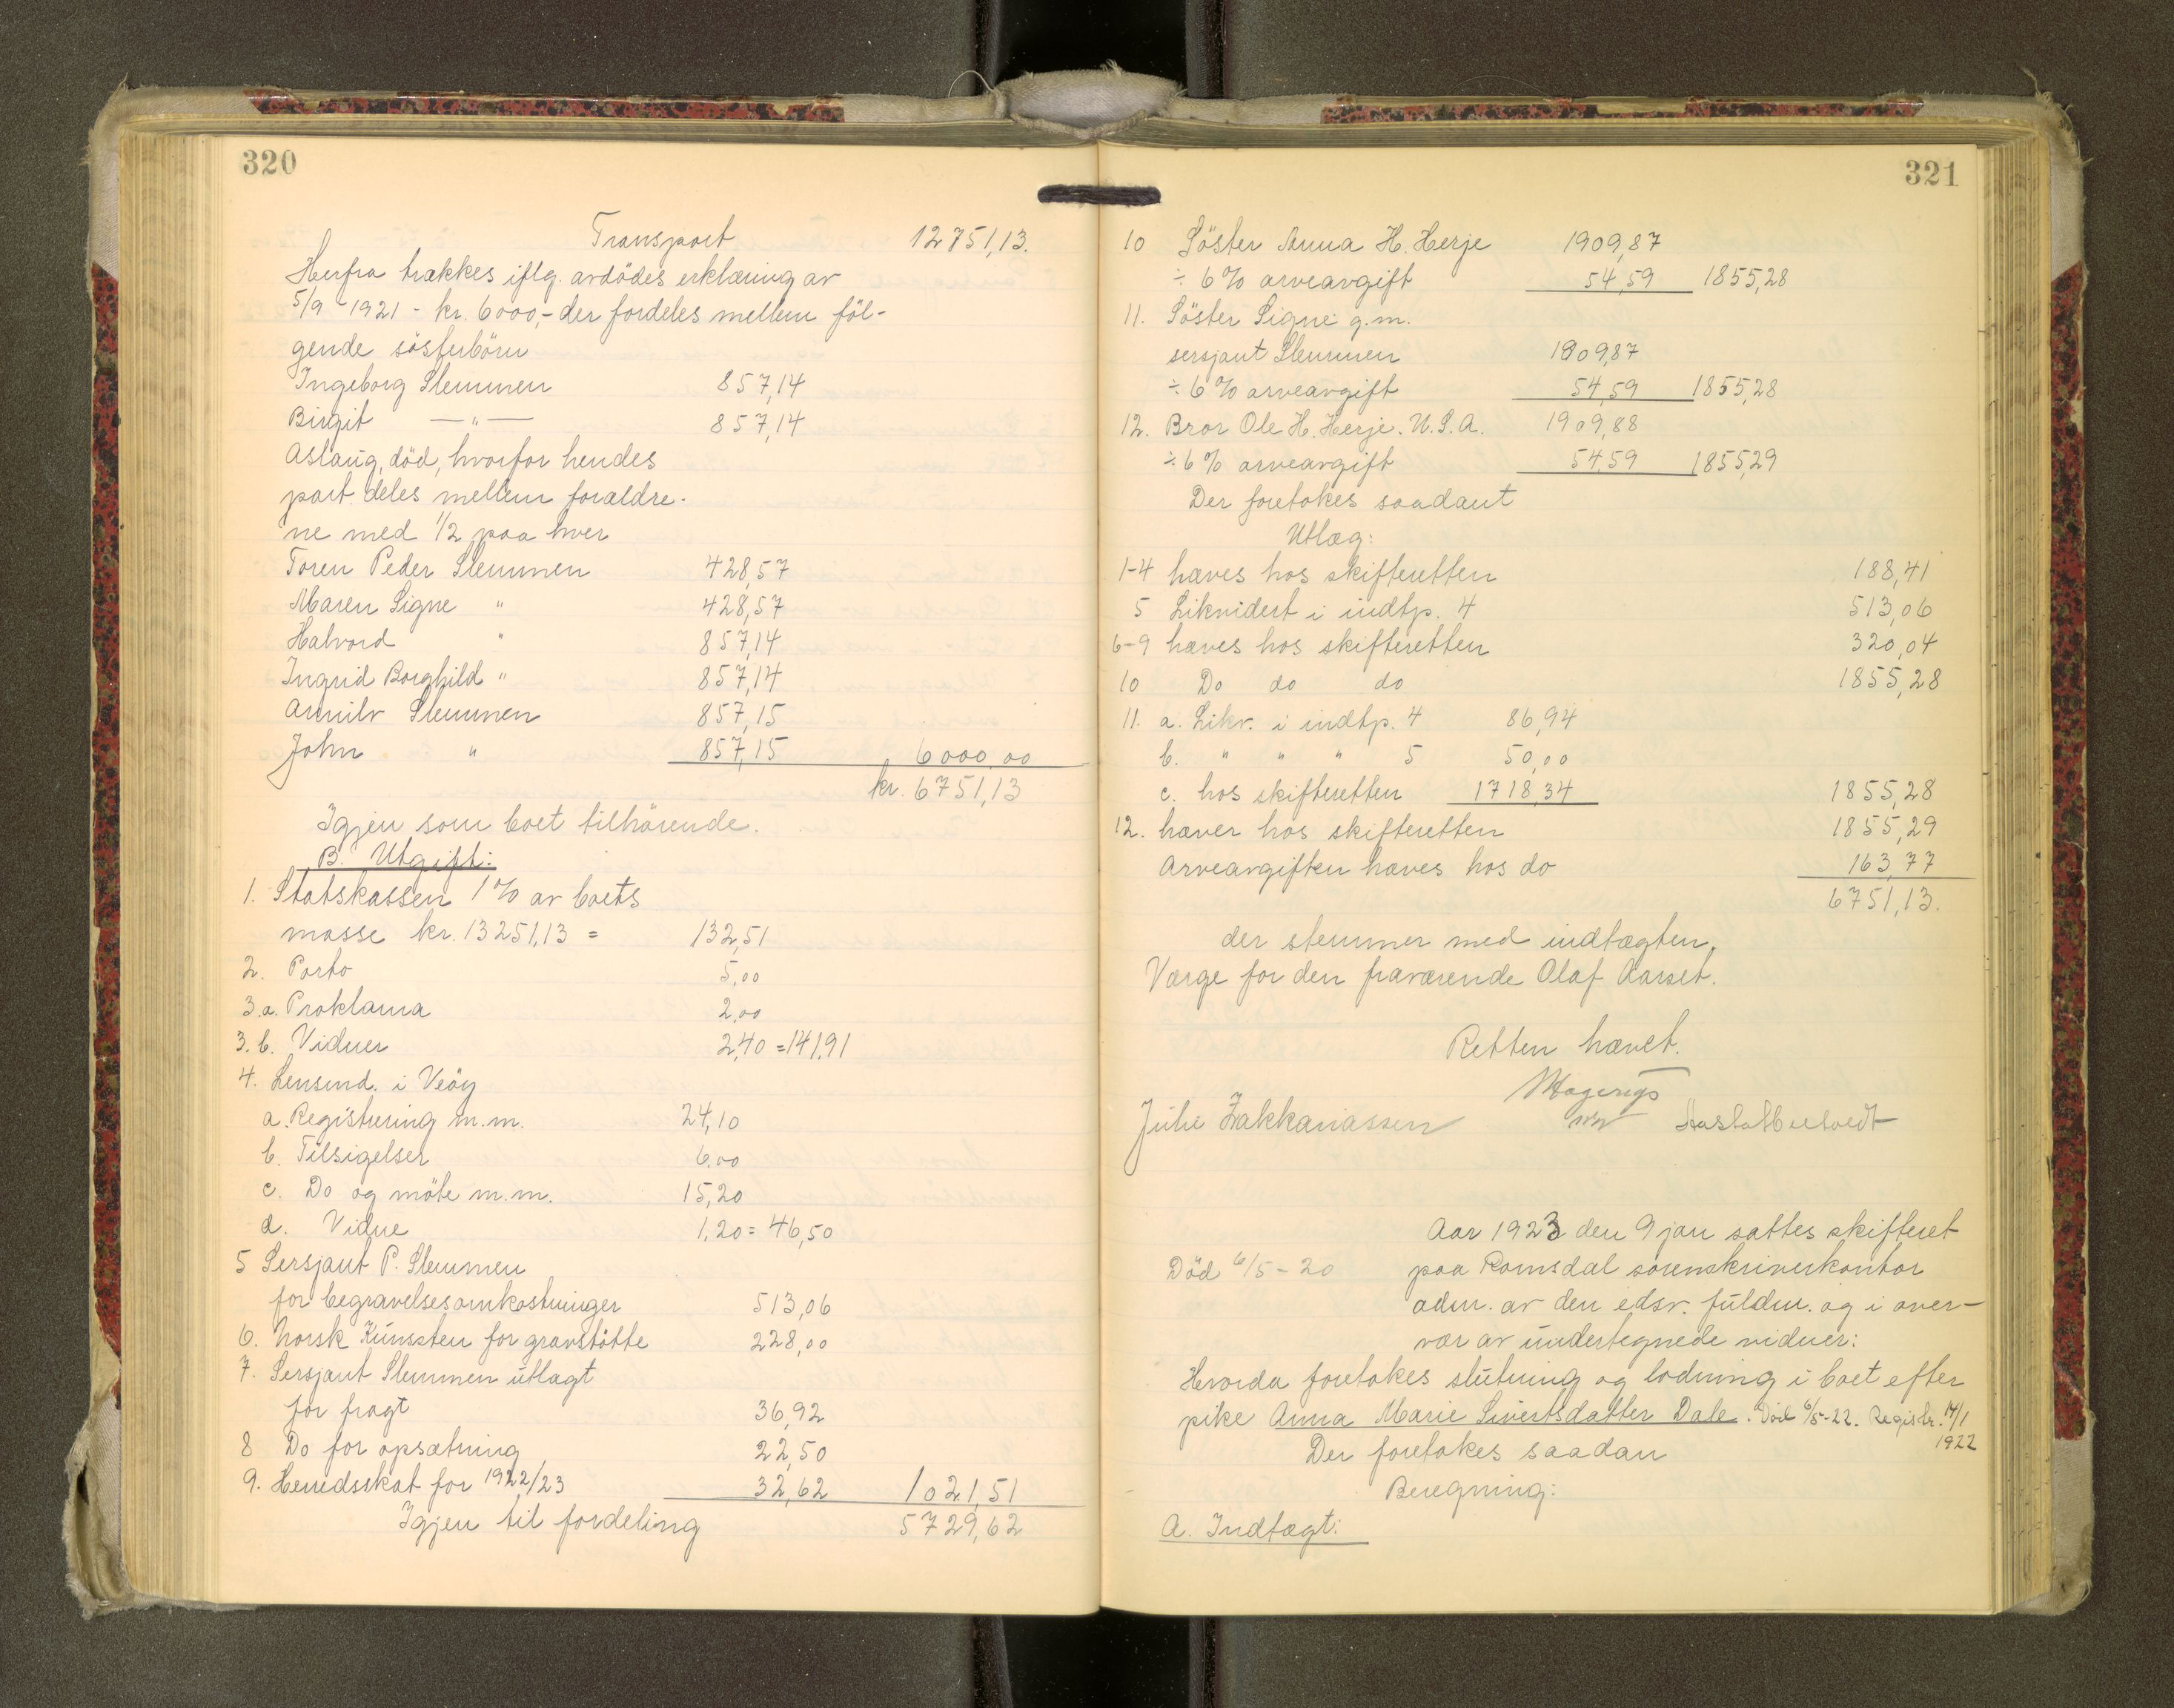 320
Transport 12751,13.
Herfra trækkes iflg. avdødes erklæring av
5/9-1921 - kr. 6000,- der fordeles mellem föl-
gende søsterbörn
Ingeborg Slemmen 857,14
Birgit —"— 857,14
Aslaug, död, hvorfor hendes
part deles mellem forældre-
ne med 1/2 paa hver
Faren Peder Slemmen 428,57
Moren Signe " 428,57
Halvord " 857,14
Ingrid Borghild " 857,14
Arnulv Slemmen 857,15
John " 857,15 6000,00
kr. 6751,13
Igjen som boet tilhörende.
B. Utgift:
1. Statskassen 1% av boets
masse kr. 13251,13 = 132,51
2. Porto 5,00
3.a. Proklama 2,00
3.b. Vidner 2,40 = 141,91
4. Lensmd. i Veöy
a. Registrering m.m. 24,10
b. Tilsigelser 6,00
c. Do og möte m.m. 15,20
d. Vidne 1,20 = 46,50
5 Sersjant P. Slemmen
for begravelsesomkostninger 513,06
6. Norsk Kunssten for gravstötte 228,00
7. Sersjant Slemmen utlagt
for fragt 36,92
8 Do for opsætning 22,50
9. Herredsskat for 1922/23 32,62 1021,51
Igjen til fordeling 5729,62
321
10 Söster Anna H. Herje 1909,87
÷ 6% arveavgift 54,59 1855,28
11. Söster Signe g.m.
sersjant Slemmen 1909,87
÷ 6% arveavgift 54,59 1855,28
12. Bror Ole H. Herje. U.S.A. 1909,88
÷ 6% arveavgift 54,59 1855,29
Der foretokes saadant
Utlæg:
1-4 hæves hos skifteretten 188,41
5 Likvidert i indtp. 4 513,06
6-9 hæves hos skifteretten 320,04
10 Do do do 1855,28
11. a. Likv. i indtp. 4 86,94
b. " " " 5 50,00
c. hos skifteretten 1718,34 1855,28
12. hæver hos skifteretten 1855,29
Arveavgiften hæves hos do 163,77
6751,13.
der stemmer med indtægten.
Værge for den fraværende Olaf Karset.
Retten hævet.
Julie Zakkariassen
Aar 1923 den 9 jan sattes skifteret
Död 6/5-20 paa Romsdal sorenskriverkontor
adm. av den edsv. fuldm. og i over-
vær av undertegnede vidner:
Hvorda foretokes slutning og lodning i boet efter
pike Anna Marie Sivertsdatter Dale. Död 6/5-22. Registr. 14/1
1922
Der foretokes saadan
Beregning:
A. Indtægt: